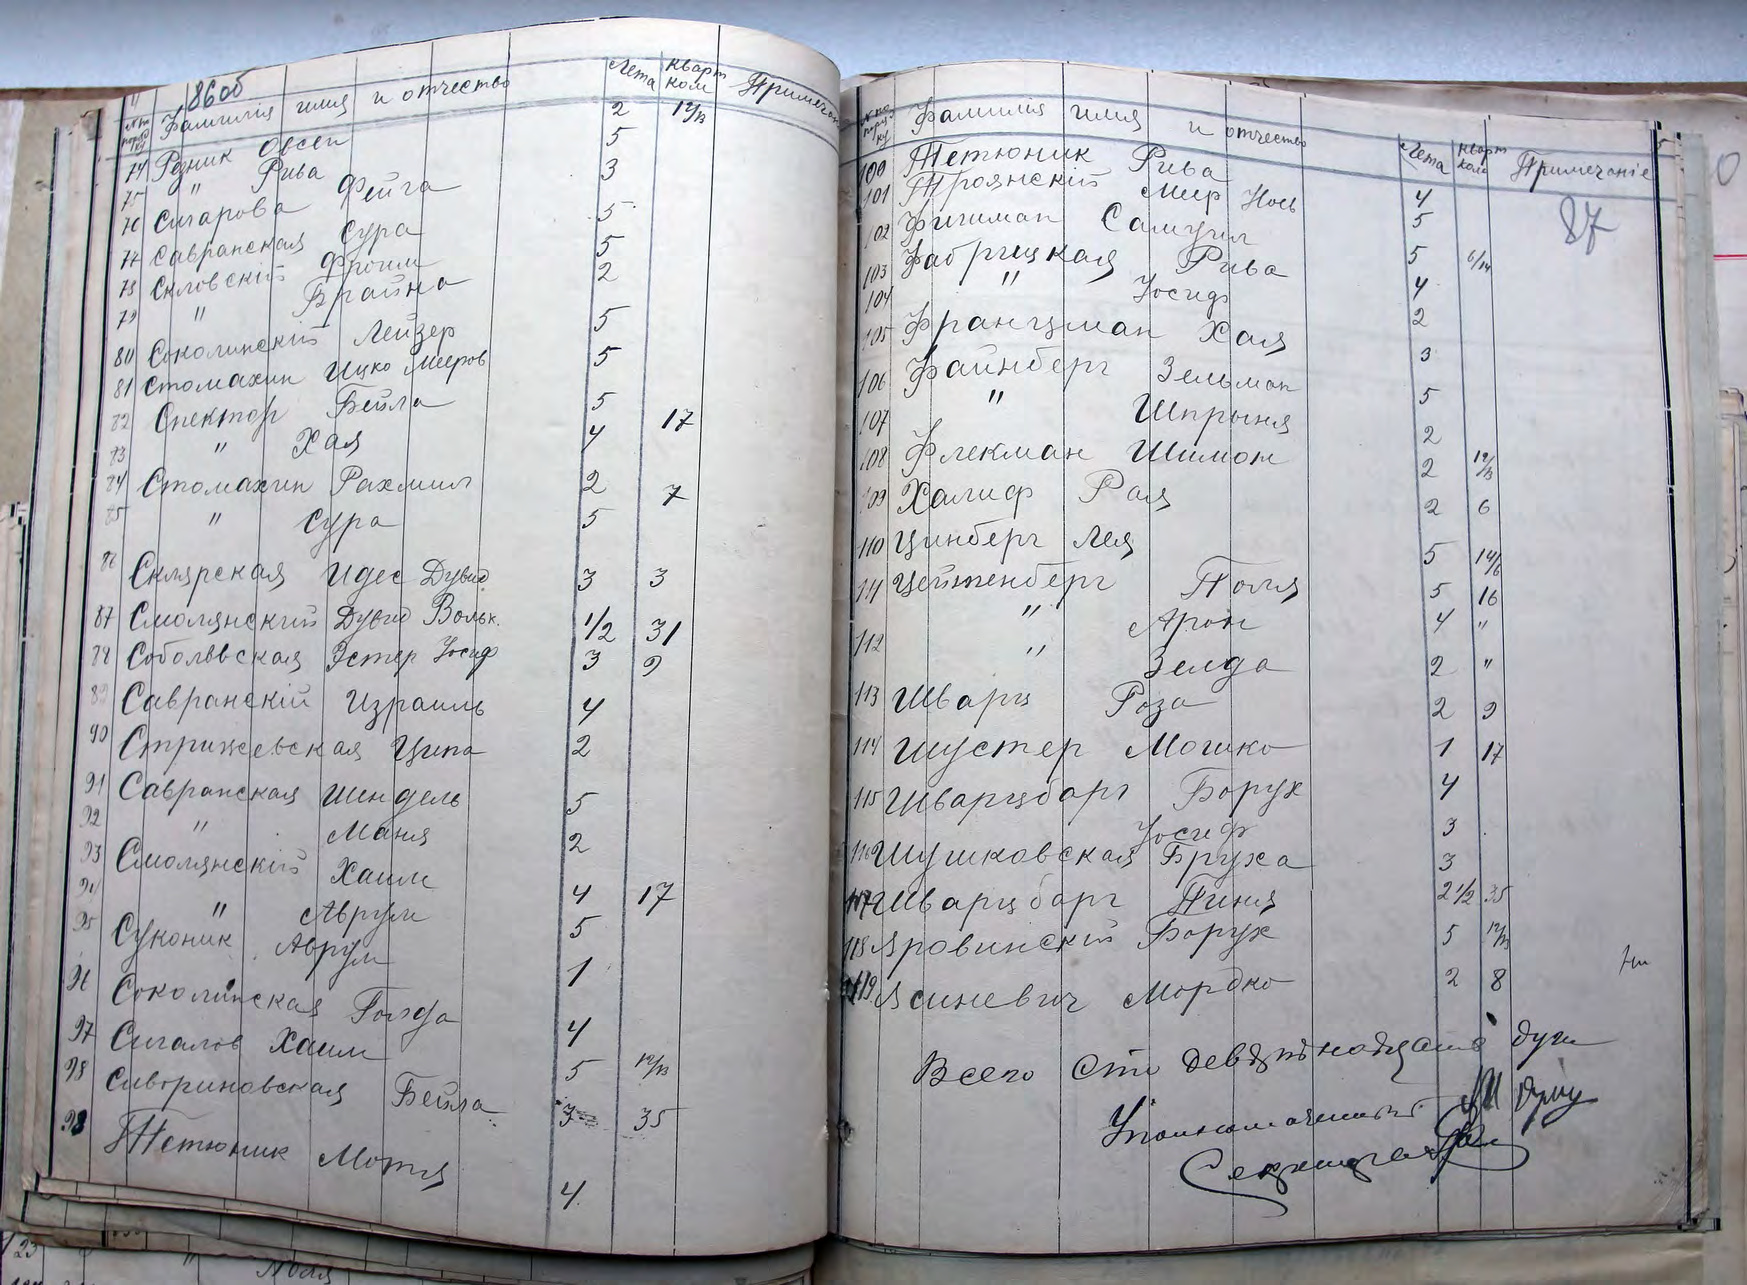 86об
№ по поряд ку Фамилія имя и отчество Лета кварт ком Примечан
74 Резник Овсей 2 12/13
75 " Рива 5
76 Сигарова Фейга 3
77 Савранская Сура 5
78 Скловскій Фроим 5
79 " Брайна 2
80 Соколинскій Лейзер 5
81 Стомахин Ицко Мееров 5
82 Спектор Бейла 5 17
83 " Хая 4
84 Стомахин Рахмил 2 7
85 " Сура 5
86 Склярская Идес Дувид 3 3
87 Смолянскій Дувид Вольк. 1/2 31
88 Соболввская Эстер Іосиф 3 9
89 Савранскій Израиль 4
90 Стрижевская Ципа 2
91 Савранская Шендель 5
92 " Маня 2
93 Смолянскій Хаим
94 " Аврум 4 17
95 Суконик Аврум 5
96 Соколинская Голда 1
97 Сигалов Хаим 4
98 Сивориновская Бейла 5 12/13
3 35
98 Тетюник Мотя 4
№ по поряд ку Фамилія имя и отчество Лета кварт ком Примечаніе
87
100 Тетюник Рива 4
101 Троянскій Меер Нось 5
102 Фигиман Самуил 5 6/14
103 Фабрицкая Рива 4
104 " Іосиф 2
105 Францман Хая 3
106 Файнберг Зельман 5
107 " Шпрыня 2
108 Флекман Шимон 2 12/13
109 Халиф Рая 2 6
110 Цинберг Лея 5 14/6
111 Цейтенберг Поля 5 16
112 " Арон 4 "
" Зелда 2 "
113 Шварц Роза 2 9
114 Шустер Мошко 1 17
115 Шварцборг Борух 4
Іосиф 3
116 Шушковская Бруха 3
117 Шварцборг Пиня 2 1/2 35
118 Яровинскій Борух 5 12/13
119 Ясиневич Мордко 2 8
Всего Сто девятнадцать душ
Уполномоченный
Секретарь